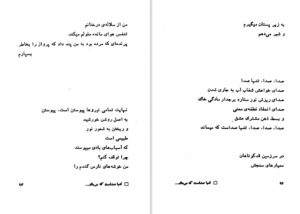 به زیر پستان میگیرم
و شیر می‌دهم
صدا، صدا، تنها صدا
صدای خواهش شفاف آب به جاری شدن
صدای ریزش نور ستاره بر جدار مادگی خاک
صدای انعقاد نطفه‌ی معنی
و بسط ذهن مشترک عشق
صدا، صدا، صدا، تنها صداست که میماند
در سرزمین قدکوتاهان
معیارهای سنجش
تنها صداست که می‌ماند...
من از سلاله‌ی درختانم
تنفس هوای مانده ملولم میکند
پرنده‌ای که مرده بود به من پند داد که پرواز را بخاطر
بسپارم
نهایت تمامی نیروها پیوستن است، پیوستن
به اصل روشن خورشید
و ریختن به شعور نور
طبیعی است
که آسیاب‌های بادی میپوسند
چرا توقف کنم؟
من خوشه‌های نارس گندم را
تنها صداست که می‌ماند...